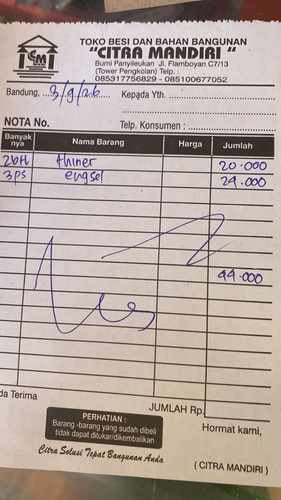 TOKO BESI DAN BAHAN BANGUNAN
CM
"CITRA MANDIRI"
Bumi Panyileukan Jl. Flamboyan C7/13
(Tower Pengkolan) Telp.
085317756829 - 085100677052
Bandung, ...3/9/26... Kepada Yth. ...
NOTA No.
Telp. Konsumen : ...
Banyak nya Nama Barang Harga Jumlah
2btl thiner 20.000
3ps engsel 24.000
44.000
da Terima
JUMLAH Rp.
PERHATIAN :
Barang -barang yang sudah dibeli
tidak dapat ditukar/dikembalikan
Hormat kami,
Citra Solusi Tepat Bangunan Anda
( CITRA MANDIRI )